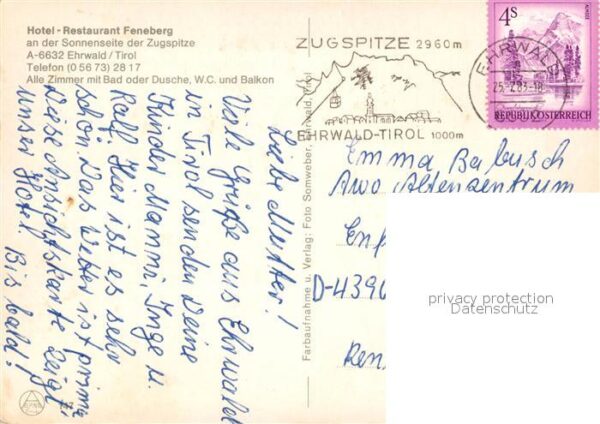 Hotel - Restaurant Feneberg
an der Sonnenseite der Zugspitze
A-6632 Ehrwald / Tirol
Telefon (0 56 73) 28 17
Alle Zimmer mit Bad oder Dusche, W.C. und Balkon
Liebe Mutter!
Viele Grüße aus Ehrwald
in Tirol senden Deine
Kinder Manni, Inge u.
Ralf. Hier ist es sehr
schön. Das Wetter ist prima
Diese Ansichtskarte zeigt
unser Hotel
Bis bald!
Farbaufnahme u. Verlag: Foto Somweber, Ehrwald, Tirol
ZUGSPITZE 2960m
EHRWALD-TIROL 1000m
EHRWALD
4S
REPUBLIK ÖSTERREICH
Emma Babusch
Awo Altenzentrum
D-4390
privacy protection
Datenschutz